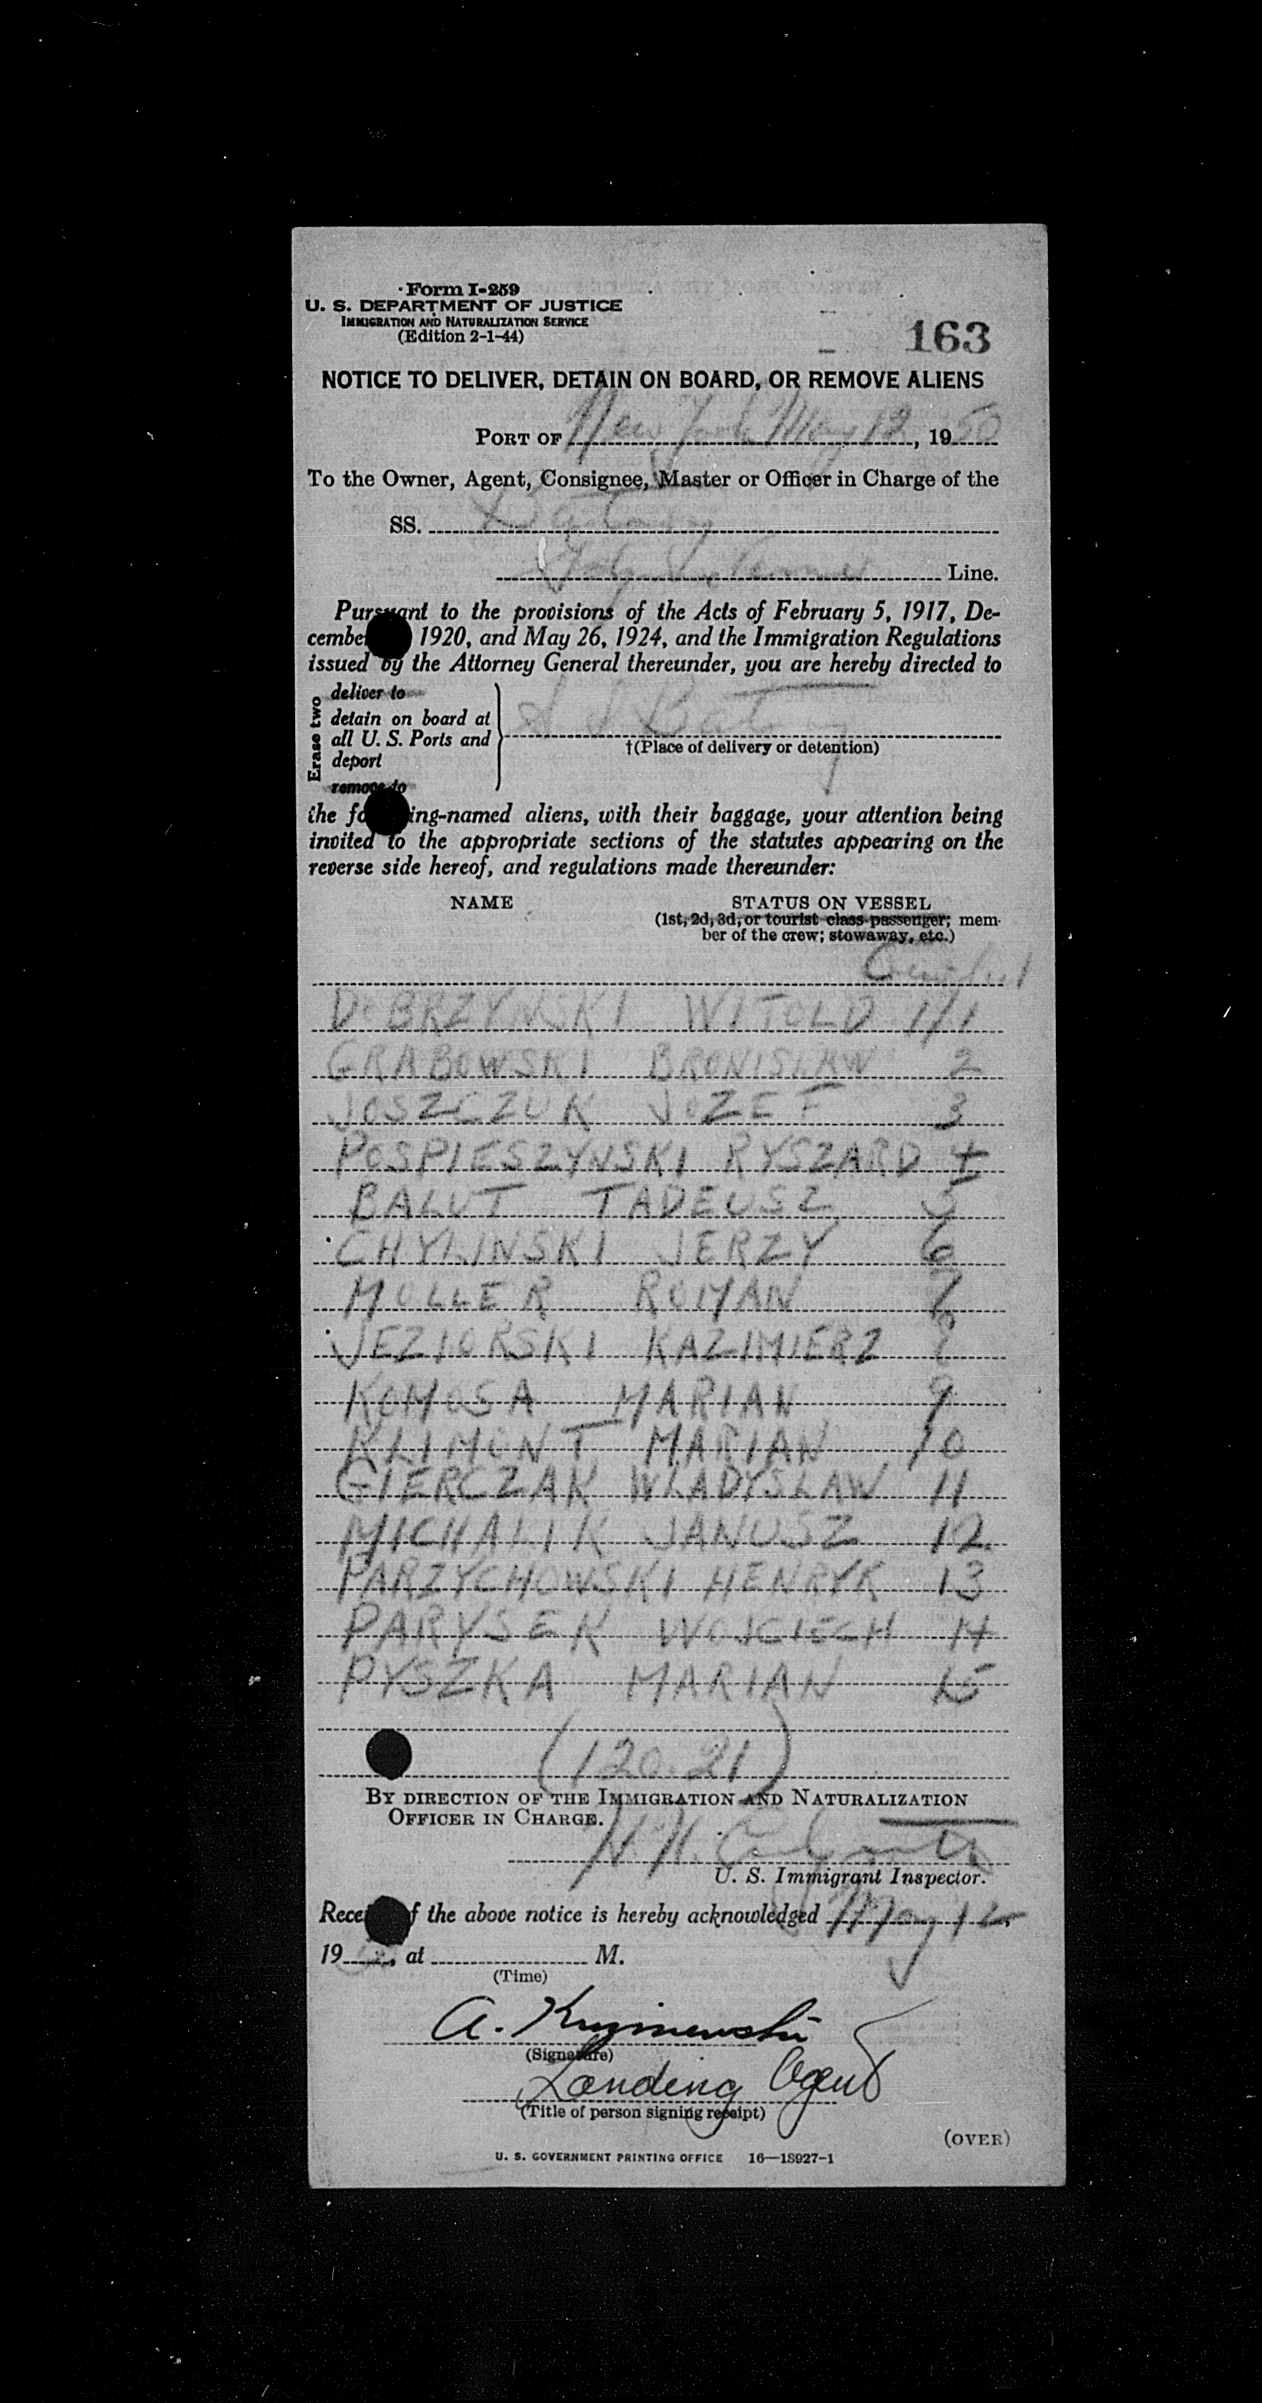 Form I-259
U. S. DEPARTMENT OF JUSTICE
IMMIGRATION AND NATURALIZATION SERVICE
(Edition 2-1-44)
163
NOTICE TO DELIVER, DETAIN ON BOARD, OR REMOVE ALIENS
PORT OF New York May 12, 1950
To the Owner, Agent, Consignee, Master or Officer in Charge of the
SS. Batory
Line.
Pursuant to the provisions of the Acts of February 5, 1917, De-
cember 1920, and May 26, 1924, and the Immigration Regulations
issued by the Attorney General thereunder, you are hereby directed to
Erase two
deliver to
detain on board at
all U. S. Ports and
deport
remove to
S S Batory
†(Place of delivery or detention)
the following-named aliens, with their baggage, your attention being
invited to the appropriate sections of the statutes appearing on the
reverse side hereof, and regulations made thereunder:
NAME STATUS ON VESSEL
(1st, 2d, 3d, or tourist class passenger; mem-
ber of the crew; stowaway, etc.)
DOBRZYNSKI WITOLD 1/1
GRABOWSKI BRONISLAW 2
JOSZCZUK JOZEF 3
POSPIESZYNSKI RYSZARD 4
BALUT TADEUSZ 5
CHYLINSKI JERZY 6
MOLLER ROMAN 7
JEZIORSKI KAZIMIERZ 8
KOMOSA MARIAN 9
KLIMONT MARIAN 10
GIERCZAK WLADYSLAW 11
MICHALIK JANUSZ 12
PARZYCHOWSKI HENRYK 13
PARYSEK WOJCIECH 14
PYSZKA MARIAN 15
(120.21)
BY DIRECTION OF THE IMMIGRATION AND NATURALIZATION
OFFICER IN CHARGE.
H. H.
U. S. Immigrant Inspector.
Receipt of the above notice is hereby acknowledged May 12,
1950, at M.
(Time)
A.
(Signature)
Landing Agent
(Title of person signing receipt)
(OVER)
U. S. GOVERNMENT PRINTING OFFICE 16—18927-1